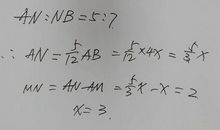 AN:NB=5:7
∴ AN=5/12 AB=5/12×4x=5/3 x
MN=AN-AM=5/3 x-x=2
x=3.